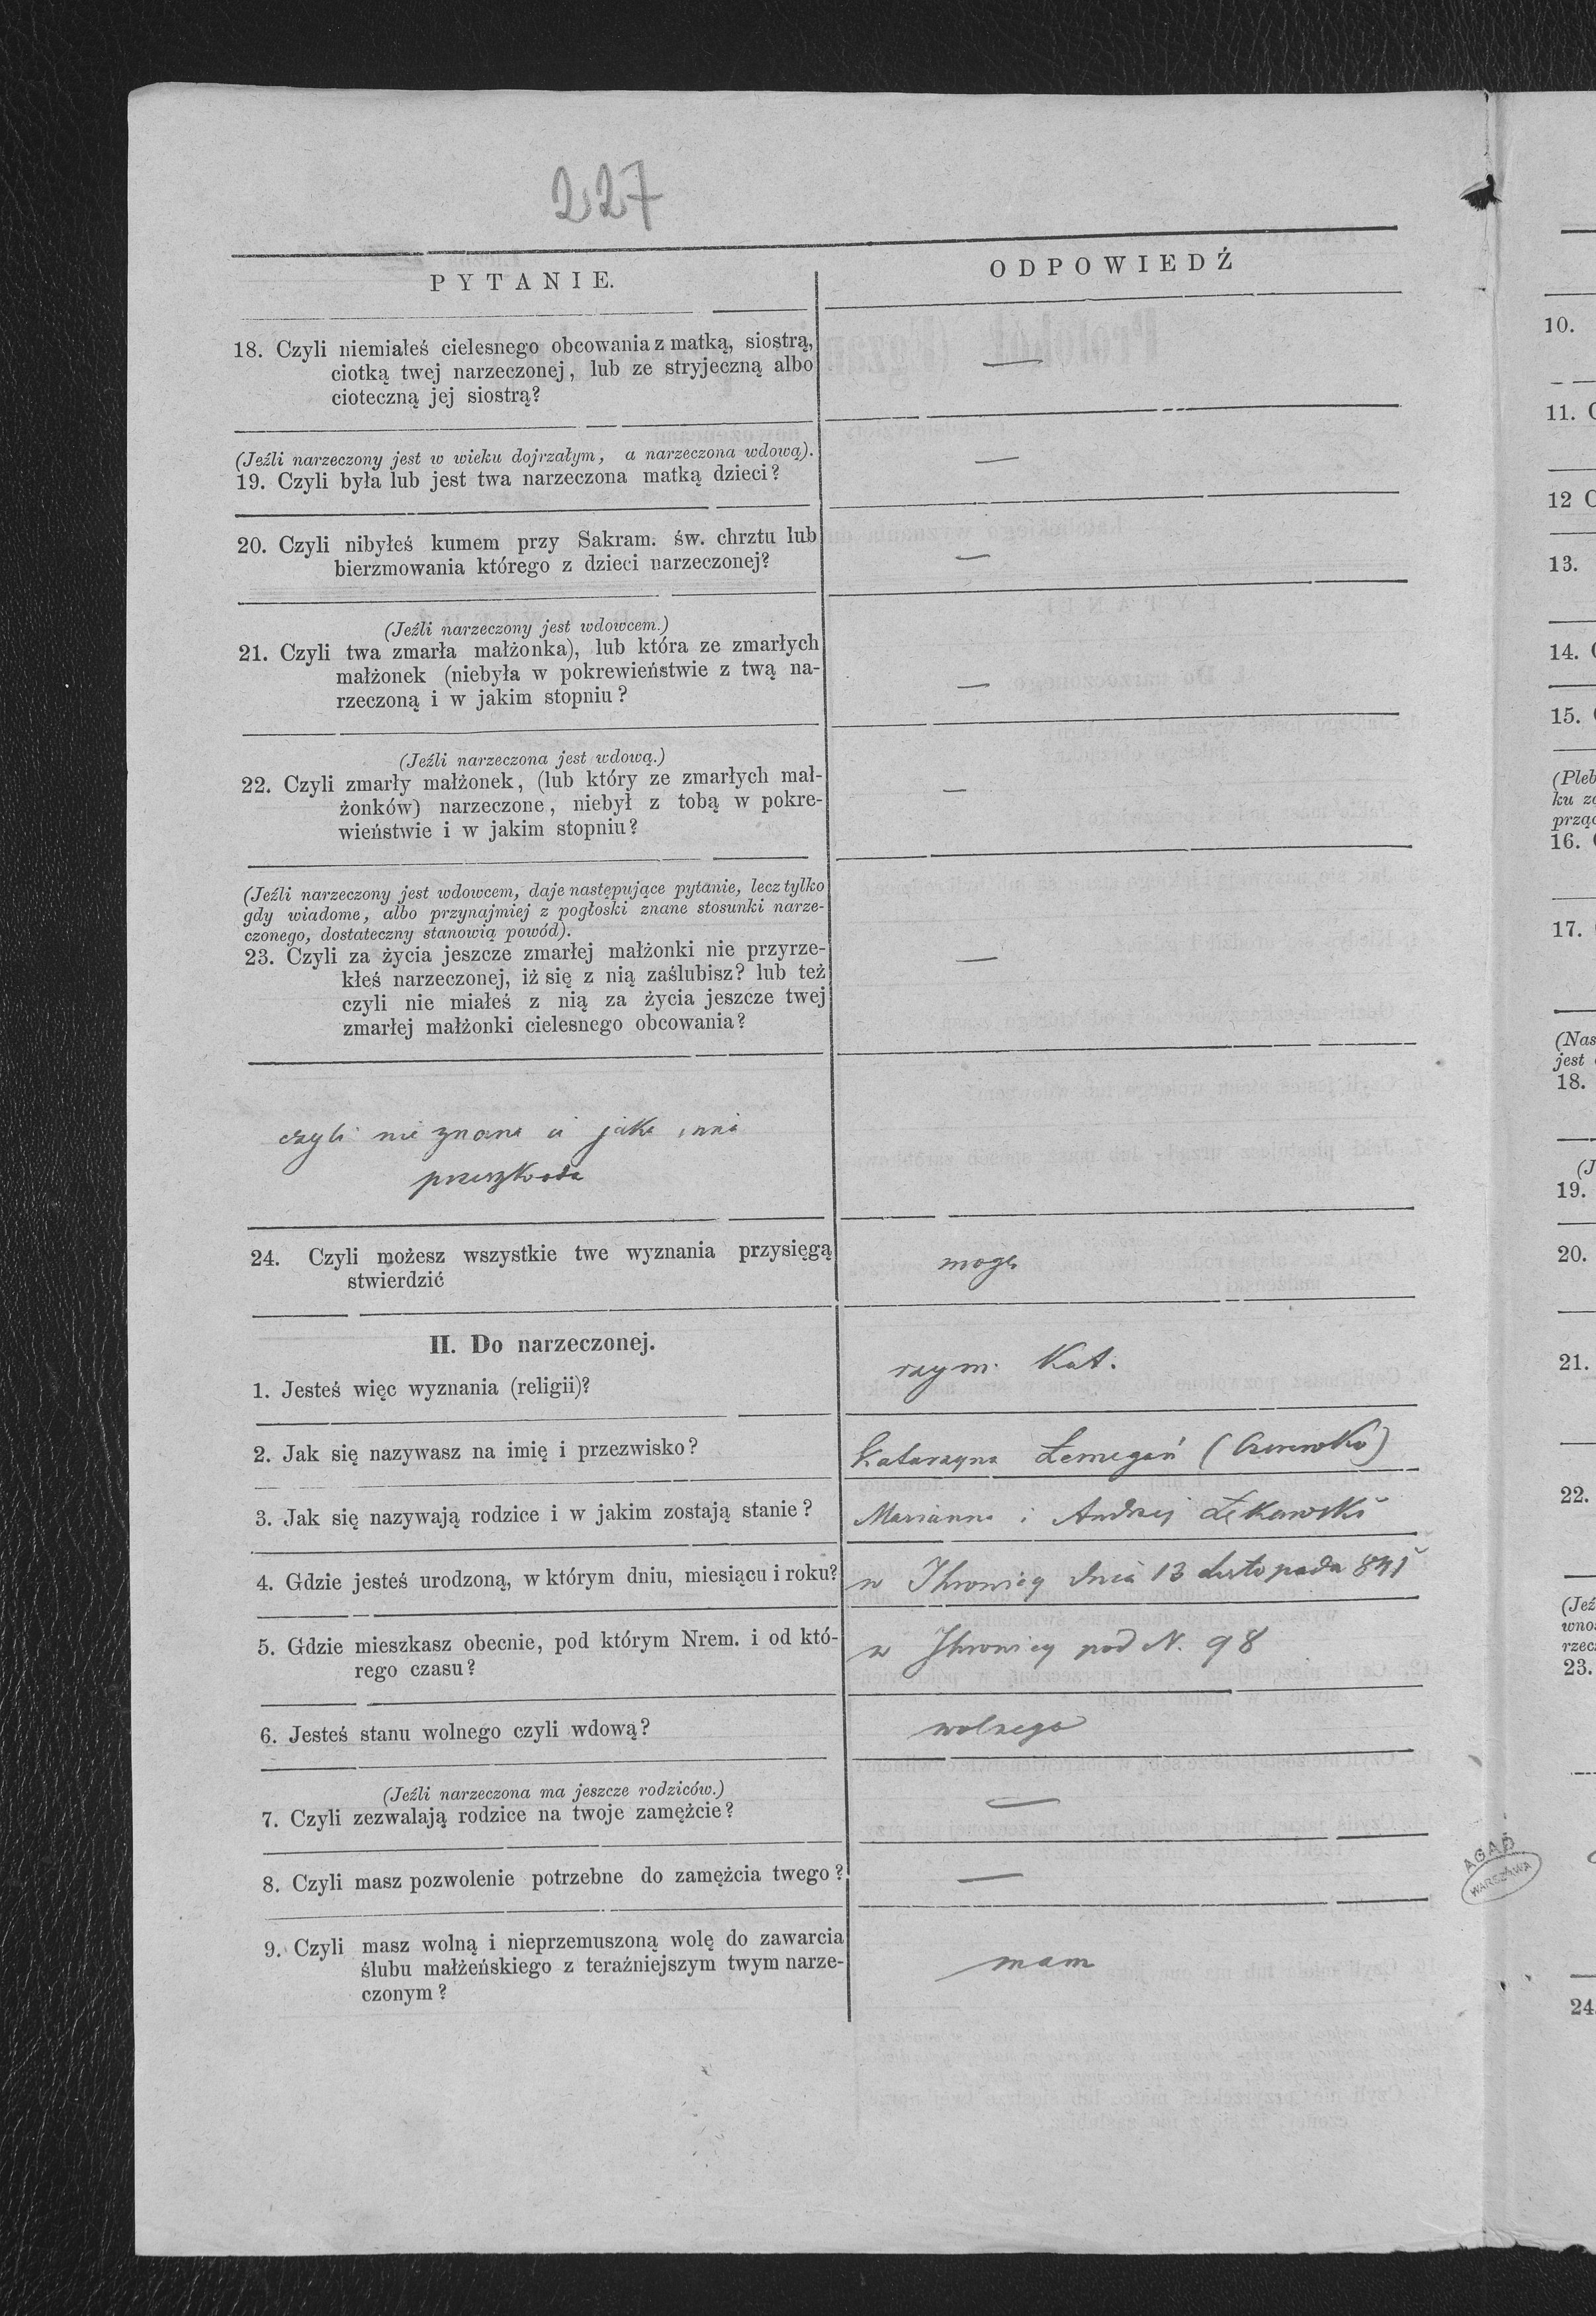 227
PYTANIE.
ODPOWIEDŹ
18. Czyli niemiałeś cielesnego obcowania z matką, siostrą,
ciotką twej narzeczonej, lub ze stryjeczną albo
cioteczną jej siostrą?
—
(Jeźli narzeczony jest w wieku dojrzałym, a narzeczona wdową).
19. Czyli była lub jest twa narzeczona matką dzieci?
—
20. Czyli nibyłeś kumem przy Sakram. św. chrztu lub
bierzmowania którego z dzieci narzeczonej?
—
(Jeźli narzeczony jest wdowcem.)
21. Czyli twa zmarła małżonka), lub która ze zmarłych
małżonek (niebyła w pokrewieństwie z twą na-
rzeczoną i w jakim stopniu?
—
(Jeźli narzeczona jest wdową.)
22. Czyli zmarły małżonek, (lub który ze zmarłych mał-
żonków) narzeczone, niebył z tobą w pokre-
wieństwie i w jakim stopniu?
—
(Jeźli narzeczony jest wdowcem, daje następujące pytanie, lecz tylko
gdy wiadome, albo przynajmiej z pogłoski znane stosunki narze-
czonego, dostateczny stanowią powód).
23. Czyli za życia jeszcze zmarłej małżonki nie przyrze-
kłeś narzeczonej, iż się z nią zaślubisz? lub też
czyli nie miałeś z nią za życia jeszcze twej
zmarłej małżonki cielesnego obcowania?
—
czyli nie znana ci jaka inna
przeszkoda
24. Czyli możesz wszystkie twe wyznania przysięgą
stwierdzić
mogę
II. Do narzeczonej.
1. Jesteś więc wyznania (religii)?
rzym. Kat.
2. Jak się nazywasz na imię i przezwisko?
Katarzyna
3. Jak się nazywają rodzice i w jakim zostają stanie?
Marianna i Andrzej
4. Gdzie jesteś urodzoną, w którym dniu, miesiącu i roku?
w dnia 13 Listopada
5. Gdzie mieszkasz obecnie, pod którym Nrem. i od któ-
rego czasu?
w pod N. 98
6. Jesteś stanu wolnego czyli wdową?
wolnego
(Jeźli narzeczona ma jeszcze rodziców.)
7. Czyli zezwalają rodzice na twoje zamężcie?
—
8. Czyli masz pozwolenie potrzebne do zamężcia twego?
—
9. Czyli masz wolną i nieprzemuszoną wolę do zawarcia
ślubu małżeńskiego z teraźniejszym twym narze-
czonym?
mam
AGAD
WARSZAWA
10.
11.
12
13.
14.
15.
16.
17.
18.
19.
20.
21.
22.
23.
24.